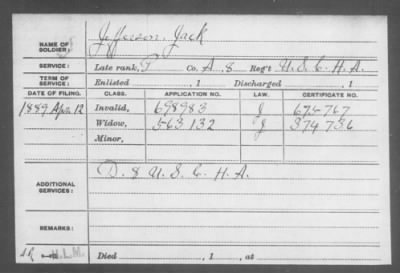 NAME OF SOLDIER: Jefferson, Jack
SERVICE: Late rank, P Co. A. 8 Reg't U. S. C. H. A.
TERM OF SERVICE: Enlisted , 1 Discharged , 1
DATE OF FILING. CLASS. APPLICATION NO. LAW. CERTIFICATE NO.
1889 Apr. 12 Invalid, 698983 J 675-767
Widow, 563 132 J 374 736
Minor,
ADDITIONAL SERVICES: D. 8 U. S. C. H. A.
REMARKS:
H.L.M. Died , 1 , at